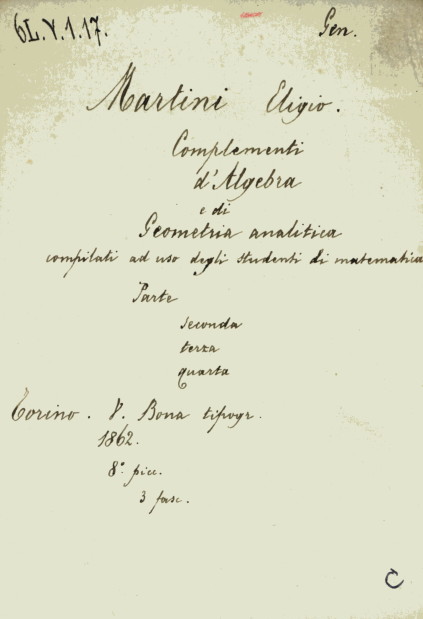 6L.V.1.17. Gen.
Martini Eligio.
Complementi
d'Algebra
e di
Geometria analitica
compilati ad uso degli studenti di matematica
Parte
seconda
terza
quarta
Torino. V. Bona tipogr.
1862.
8.° picc.
3 fasc.
C